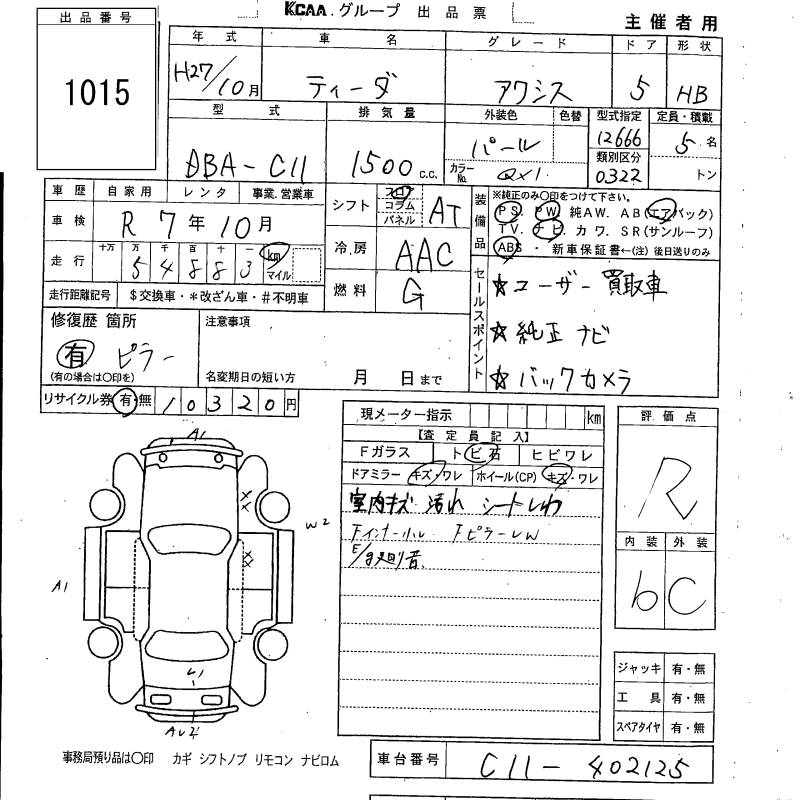 KCAA.グループ 出品票
主催者用
出品番号
1015
年式 車名 グレード ドア 形状
H27/10月 ティーダ アクシス 5 HB
型式 排気量 外装色 色替 型式指定 定員・積載
DBA-C11 1500 c.c. パール 12666 5名
カラーNo. QX1 類別区分 0322 トン
車歴 自家用 レンタ 事業.営業車
車検 R7年10月
走行 十万 万 千 百 十 一 km マイル
54883
走行距離記号 $交換車・*改ざん車・#不明車
シフト フロア コラム パネル AT
冷房 AAC
燃料 G
装備品 ※純正のみ〇印をつけて下さい。
PS. PW 純AW. AB(エアバック)
TV. ナビ. カワ. SR(サンルーフ)
ABS・ 新車保証書←(注)後日送りのみ
セールスポイント
☆ユーザー買取車
☆純正ナビ
☆バックカメラ
修復歴 箇所
有 ピラー
(有の場合は〇印を)
注意事項
名変期日の短い方 月 日まで
リサイクル券 有・無 10320円
現メーター指示 km
【査定員記入】
Fガラス トビ石 ヒビワレ
ドアミラー キズ・ワレ ホイール(CP) キズ・ワレ
室内キズ 汚れ シートしわ
Fインナーホル FピラーLW
E/g廻り音
評価点
R
内装 外装
b C
ジャッキ 有・無
工具 有・無
スペアタイヤ 有・無
A1
××
W2
××
A1
U1
AU4
事務局預り品は〇印 カギ シフトノブ リモコン ナビロム
車台番号 C11-402125